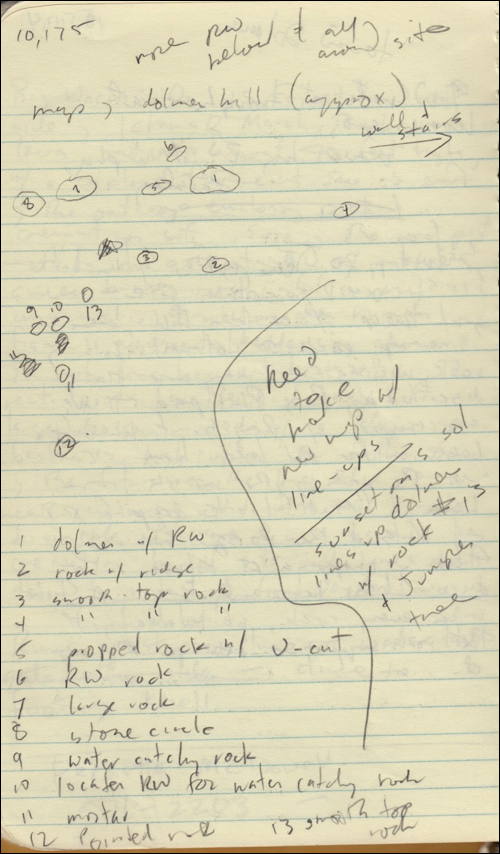 10,175
more RW
below & all
around site
map → dolmen hill (approx.)
wall +
stairs
6
8 7 5 1
4
3 2
9 10 13
11
12
need
to
make
new map w/
line-ups
sunset on s sol
lines up dolmen
w/ rock #13
+ Juniper
tree
1 dolmen w/ RW
2 rock w/ ridge
3 smooth-top rock
4 " " "
5 propped rock w/ U-cut
6 RW rock
7 large rock
8 stone circle
9 water catchy rock
10 locater RW for water catchy rock
11 mortar
12 Pointed rock
13 smooth top
rock